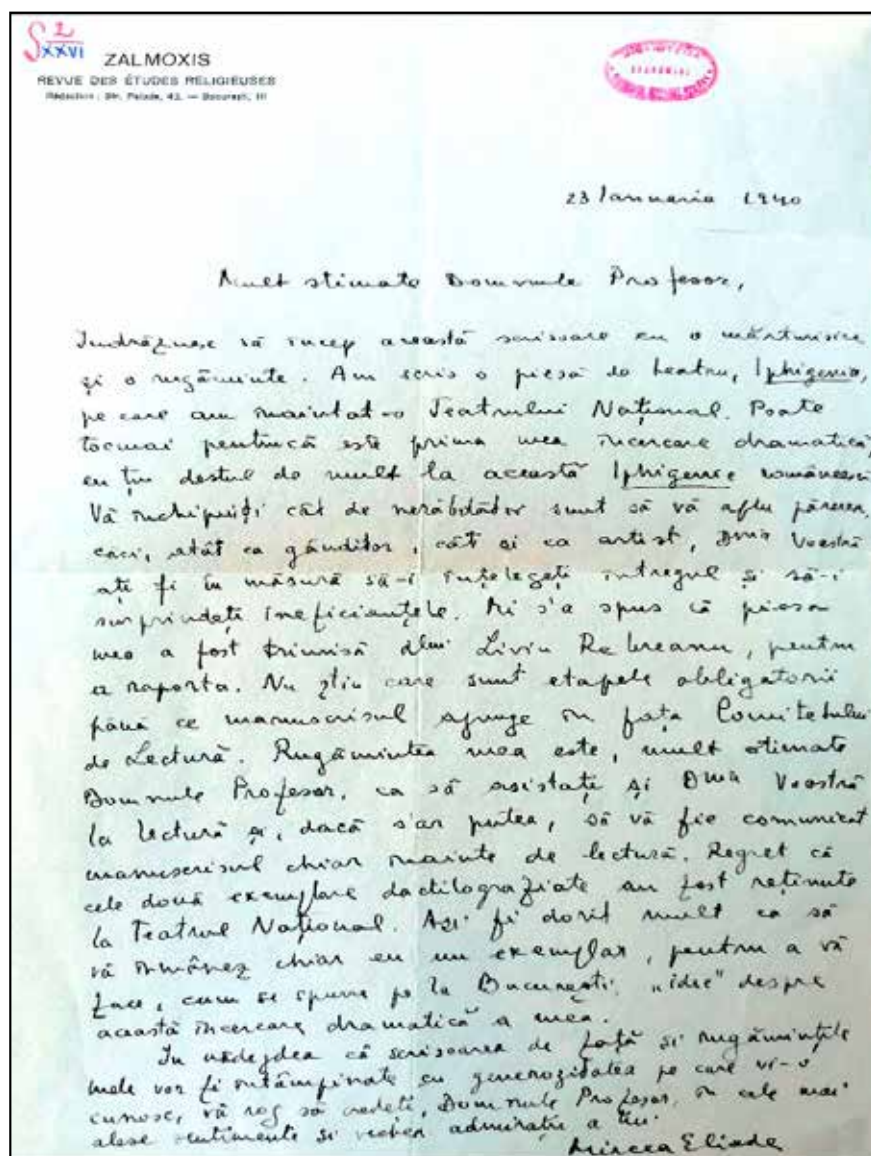 S 2
XXVI
ZALMOXIS
REVUE DES ÉTUDES RELIGIEUSES
Rédaction : Str. Palade, 43. — Bucureşti, III
23 Ianuarie 1940
Mult stimate Domnule Profesor,
Indrăznesc să încep această scrisoare cu o mărturisire
şi o rugăminte. Am scris o piesă de teatru, Iphigenia,
pe care am înaintat-o Teatrului Naţional. Poate
tocmai pentrucă este prima mea încercare dramatică,
eu ţin destul de mult la această Iphigenie românească
Vă închipuiţi cât de nerăbdător sunt să vă aflu părerea,
căci, atât ca gânditor, cât şi ca artist, Dma Voastră
aţi fi în măsură să-i înţelegeţi întregul şi să-i
surprindeţi ineficienţele. Mi s'a spus că piesa
mea a fost trimisă dlui Liviu Rebreanu, pentru
a raporta. Nu ştiu care sunt etapele obligatorii
până ce manuscrisul ajunge în faţa Comitetului
de Lectură. Rugămintea mea este, mult stimate
Domnule Profesor, ca să asistaţi şi Dma Voastră
la lectură şi, dacă s'ar putea, să vă fie comunicat
manuscrisul chiar înainte de lectură. Regret că
cele două exemplare dactilografiate au fost reţinute
la Teatrul Naţional. Aşi fi dorit mult ca să
vă înmânez chiar eu un exemplar, pentru a vă
face, cum se spune pe la Bucureşti, „idee" despre
această încercare dramatică a mea.
In nădejdea că scrisoarea de faţă şi rugăminţile
mele vor fi întâmpinate cu generozitatea pe care vi-o
cunosc, vă rog să credeţi, Domnule Profesor, în cele mai
alese sentimente şi vechea admiraţie a lui
Mircea Eliade